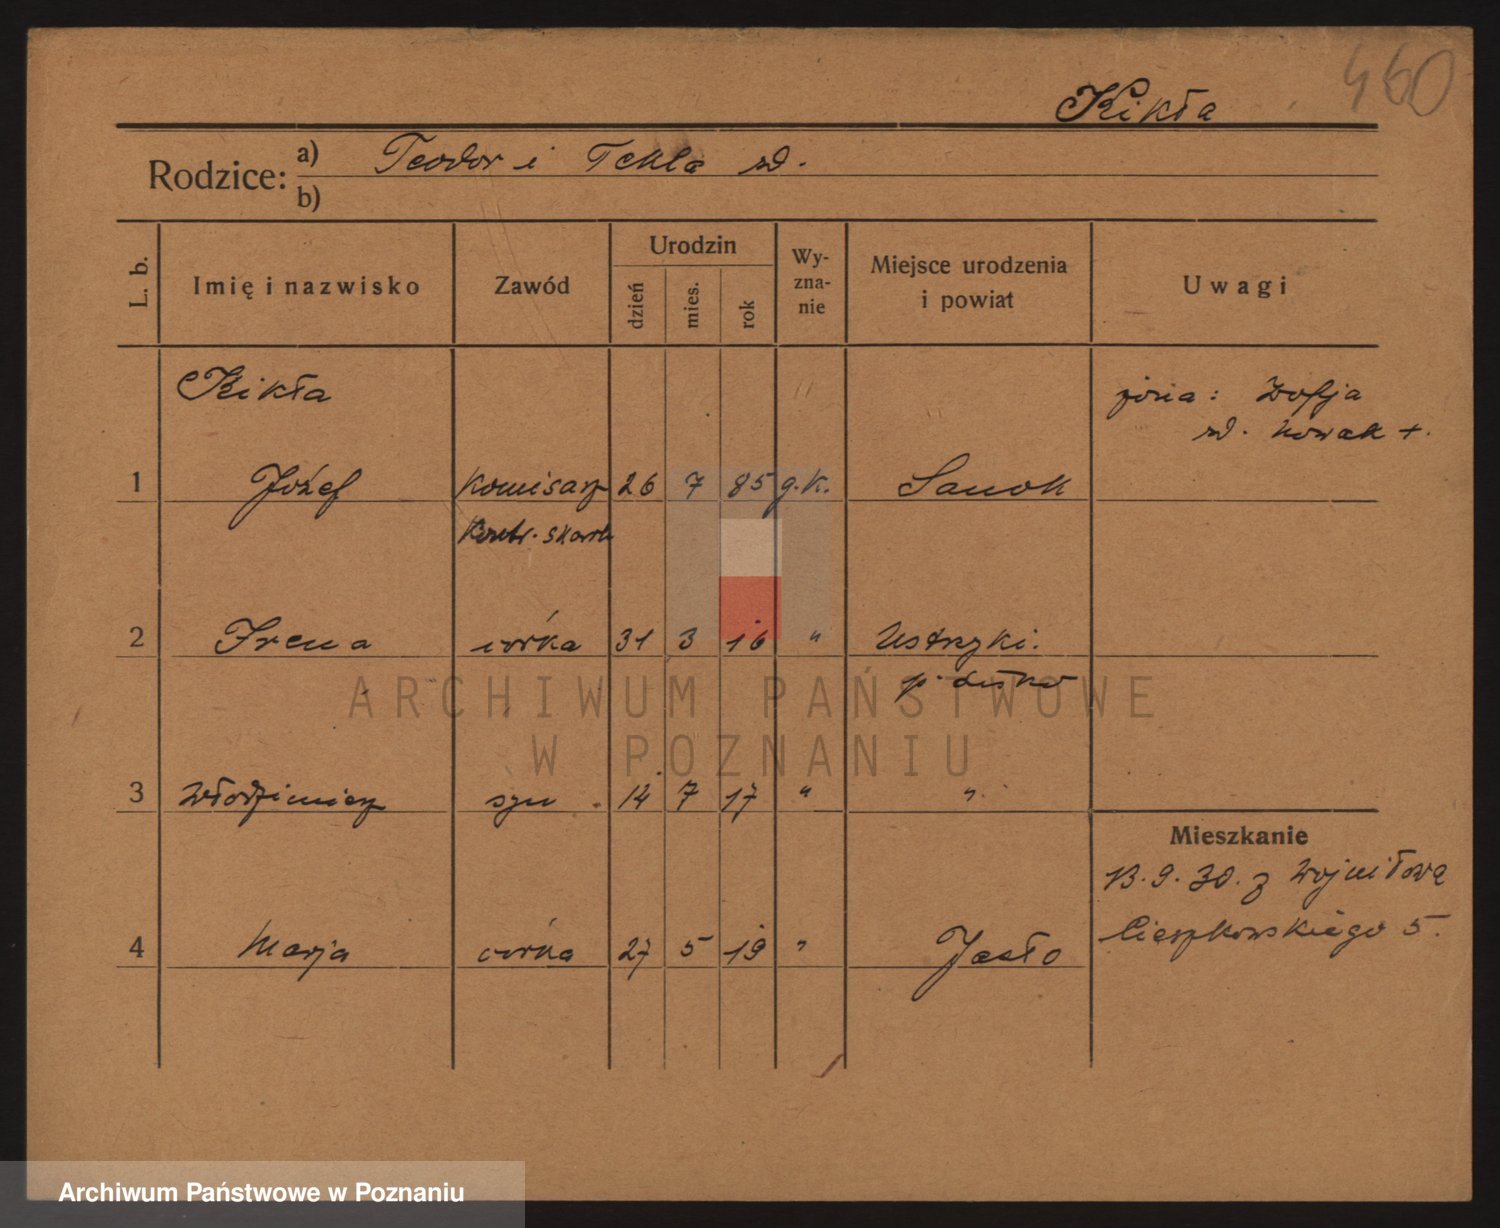 460
Kikła
Rodzice: a) Teodor i Tekla zd.
b)
L. b. Imię i nazwisko Zawód Urodzin dzień mies. rok Wy-zna-nie Miejsce urodzenia i powiat Uwagi
Kikła żona: Zofja
zd. Nowak +.
1 Józef komisarz 26 7 85 g.k. Sanok
Kontr. skarb
2 Irena córka 31 3 16 " Ustrzyki.
p. Lisko
ARCHIWUM PAŃSTWOWE
W POZNANIU
3 Włodzimierz syn 14 7 17 " "
Mieszkanie
13.9.30. z Wojniłowa
4 Marja córka 27 5 19 " Jasło Cieszkowskiego 5.
Archiwum Państwowe w Poznaniu